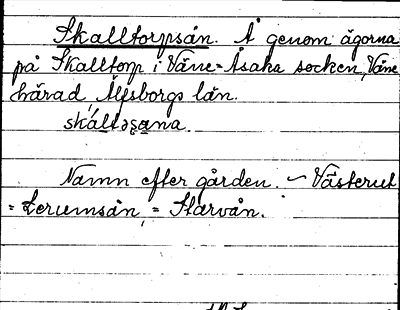 Skalltorpsån. Å genom ägorna
på Skalltorp i Väne-Åsaka socken, Väne
härad, Älvsborgs län.
skáltǝṣana.
Namn efter gården. ~ Västerut
= Lerumsån, = Starvån.